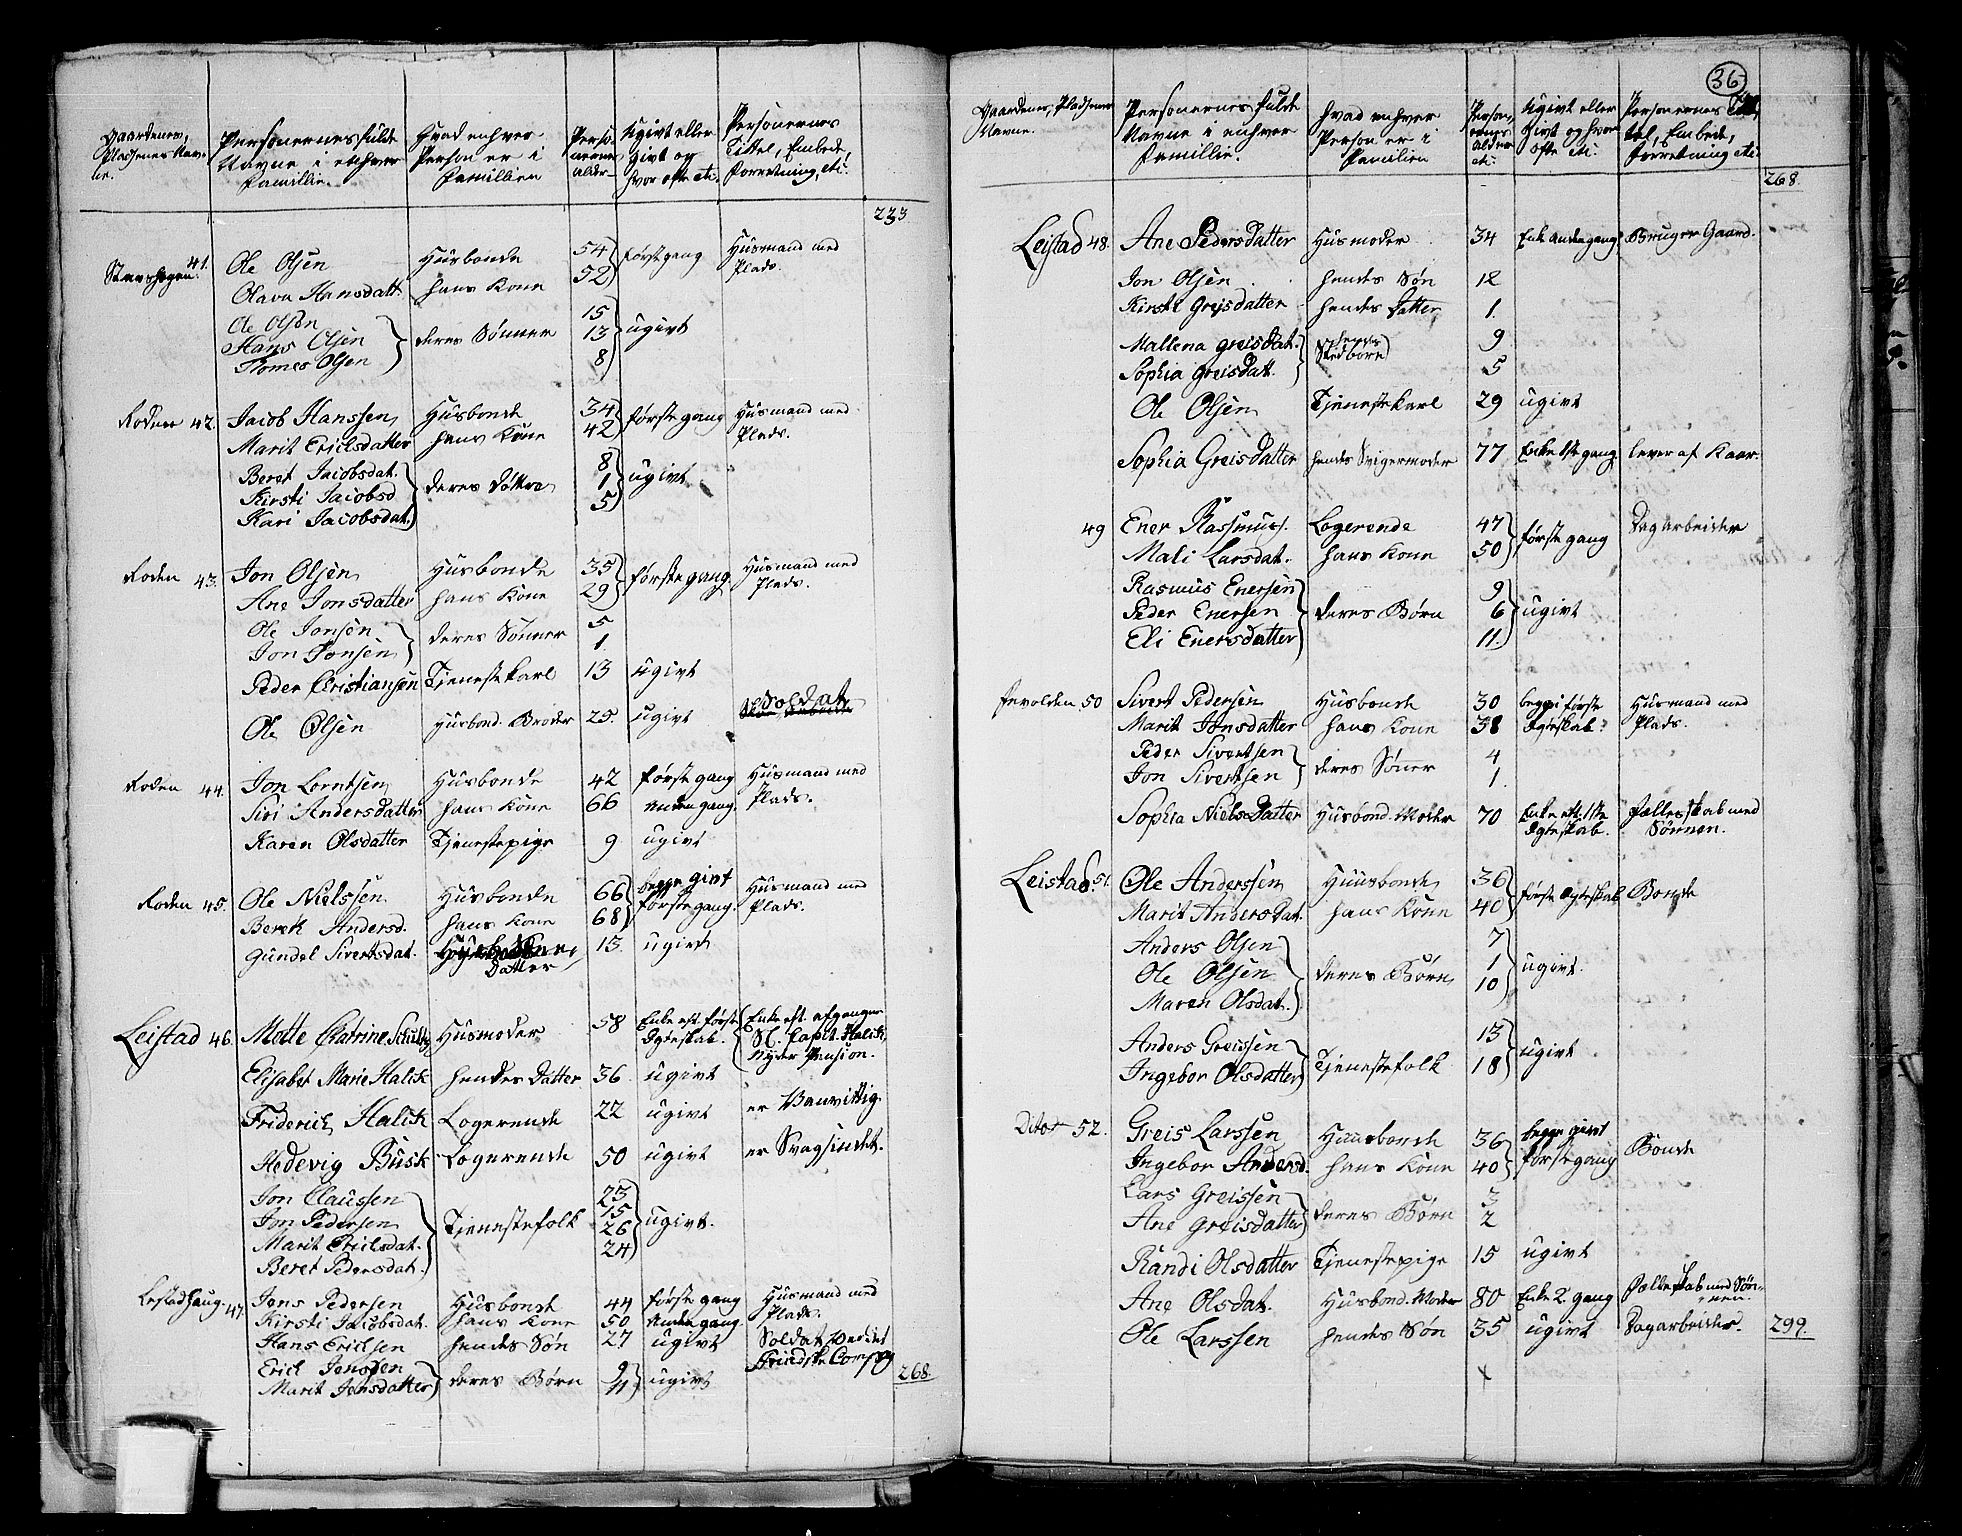 Gaardenes, Pladsenes Navne. Personernes fulde Navne i enhver Familie. Hvad enhver Person er i Familien Personernes Alder Ugivt eller givt og hvor ofte etc. Personernes Tittel, Embede, Forretning, etc.
223
41. Ole Olsen Husbonde 54 første gang Husmand med Plads.
Olava Hansdatt. hans Kone 52
Ole Olsen 15
Hans Olsen deres Sønner 13 ugivt
Thomes Olsen 8
Roden 42. Jacob Hanssen Husbonde 34 første gang Husmand med Plads.
Marit Ericksdatter hans Kone 42
Beret Jacobsdat. 8
Kirsti Jacobsd deres Døttre 1 ugivt
Kari Jacobsdat. 5
Roden 43. Jon Olsen Husbonde 35 første gang Husmand med Plads.
Ane Jonsdatter hans Kone 29
Ole Jonsen deres Sønner 5
Jon Jonsen 1.
Peder Christiansen Tjenestekarl 13 ugivt
Ole Olsen Husbond. Broder 25. ugivt Soldat
Roden 44. Jon Lorntsen Husbonde 42 første gang Husmand med Plads.
Siri Andersdatter hans Kone 66 anden gang.
Karen Olsdatter Tjenestepige 9 ugivt
Roden 45. Ole Nielssen Husbonde 66 begge givt første gang. Husmand med Plads.
Beret Andersd. hans Kone 68
Gundel Sivertsdat. Datter 13 ugivt
Leistad 46. Mette Catrine Schultz Husmoder 58 Enke eft. første Egteskab. Enke eft. afgangne Sl. Capit. Halik, nyder Pension.
Elisabet Marie Halik hendes Datter 36. ugivt
Friderich Halik Logerende 22 ugivt er Vanvittig.
Hedevig Busk Logerende 50 ugivt er Svagsindet.
Jon Claussen 23
Jon Pedersen Tjenestefolk 15 ugivt.
Marit Ericksdat. 26
Beret Pedersdat. 24
Lestadhaug. 47 Jens Pedersen Husbonde 44 første gang Husmand med Plads.
Kirsti Jacobsdat. hans Kone 50 anden gang
Hans Erichsen hendes Søn 27 ugivt Soldat
Erich Jenssen deres Børn 9 ugivt
Marit Jensdatter 11
268.
36
Gaardenes, Pladsenes Navne. Personernes fulde Navne i enhver Familie. Hvad enhver Person er i Familien Personernes Alder etc. Ugivt eller Givt og hvor ofte etc. Personernes Tittel, Embede, Forretning etc.
268.
Leistad 48. Ane Pedersdatter Husmoder 34 Enke anden gang Bruger Gaard.
Jon Olsen hendes Søn 12
Kirsti Greisdatter hendes Datter 1.
Mallena Greisdat. hendes Stedbørn 9
Sophia Greisdat. 5
Ole Olsen Tjenestekarl 29 ugivt
Sophia Greisdatter hendes Svigermoder 77 Enke 1ste gang lever af Kaar.
49 Ener Rasmuss. Logerende 47 første gang Dagarbeider
Mali Larsdat. hans Kone 50
Rasmus Enersen 9
Peder Enersen deres Børn 6 ugivt
Eli Enersdatter 11
50 Sivert Pedersen Husbonde 30 begge i første Egteskab. Husmand med Plads.
Marit Jonsdatter hans Kone 38
Peder Sivertsen deres Søner 4
Jon Sivertsen 1.
Sophia Niels Datter Husbond. Moder 70 Enke eft. 1ste Egteskab. Fællesskab med Sønnen.
Leistad. 51. Ole Anderssen Huusbonde 36 første Egteskab Bonde
Marit Andersdat. hans Kone 40
Anders Olsen 7
Ole Olsen deres Børn 1 ugivt.
Maren Olsdat. 10
Anders Greissen Tjenestefolk 13 ugivt
Ingebor Olsdatter 18
Ditot 52. Greis Larssen Huusbonde 36 begge givt første gang Bonde
Ingebor Andersd. hans Kone 40
Lars Greissen deres Børn 3
Ane Greisdatter 2
Randi Olsdatter Tjenestepige 15 ugivt
Ane Olsdat. Husbond. Moder 80 Enke 2. gang Fælleskab med Sønnen.
Ole Larssen hendes Søn 35 ugivt Dagarbeider. 299.